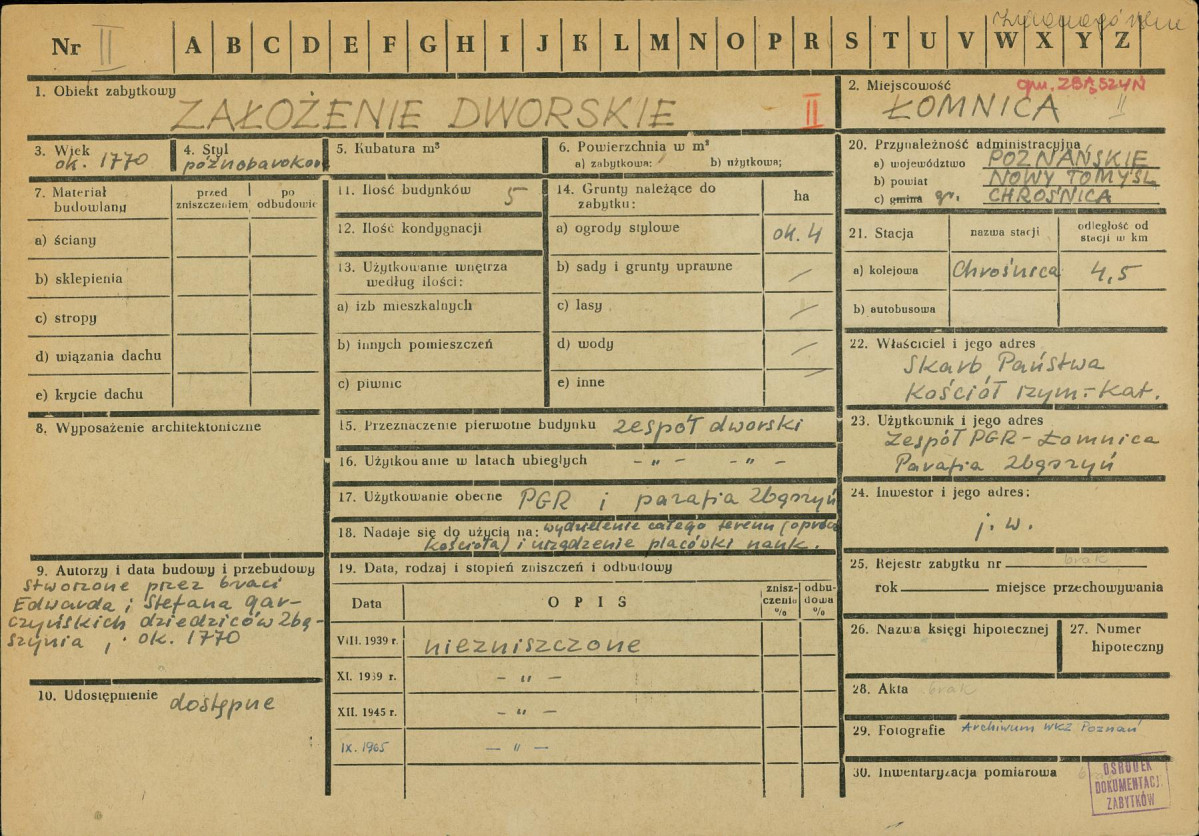 Nr II A B C D E F G H I J K L M N O P R S T U V W X Y Z
1. Obiekt zabytkowy
ZAŁOŻENIE DWORSKIE II
2. Miejscowość gm. ZBĄSZYŃ
ŁOMNICA II
3. Wiek
ok. 1770
4. Styl
późnobarokowe
5. Kubatura m³
6. Powierzchnia w m²
a) zabytkowa: b) użytkowa;
20. Przynależność administracyjna
a) województwo POZNAŃSKIE
b) powiat NOWY TOMYŚL
c) gmina gr. CHROŚNICA
7. Materiał budowlany
przed zniszczeniem
po odbudowie
a) ściany
b) sklepienia
c) stropy
d) wiązania dachu
e) krycie dachu
11. Ilość budynków 5
12. Ilość kondygnacji
13. Użytkowanie wnętrza
według ilości:
a) izb mieszkalnych
b) innych pomieszczeń
c) piwnic
14. Grunty należące do
zabytku:
ha
a) ogrody stylowe ok. 4
b) sady i grunty uprawne /
c) lasy /
d) wody /
e) inne /
21. Stacja
nazwa stacji
odległość od
stacji w km
a) kolejowa Chrośnica 4,5
b) autobusowa
22. Właściciel i jego adres
Skarb Państwa
Kościół rzym.-kat.
8. Wyposażenie architektoniczne
15. Przeznaczenie pierwotne budynku zespół dworski
16. Użytkowanie w latach ubiegłych - " - - " -
17. Użytkowanie obecne PGR i parafia Zbąszyń
18. Nadaje się do użycia na: wydzielenie całego terenu (oprócz
kościoła) i urządzenie placówki nauk.
23. Użytkownik i jego adres
Zespół PGR - Łomnica
Parafia Zbąszyń
24. Inwestor i jego adres:
j. w.
9. Autorzy i data budowy i przebudowy
Stworzone przez braci
Edwarda i Stefana Gar-
czyńskich dziedziców Zbą-
szynia, ok. 1770
10. Udostępnienie dostępne
19. Data, rodzaj i stopień zniszczeń i odbudowy
Data
OPIS
znisz-
czenia
%
odbu-
dowa
%
VIII. 1939 r. niezniszczone
XI. 1939 r. - " -
XII. 1945 r. - " -
IX. 1965 - " -
25. Rejestr zabytku nr brak
rok miejsce przechowywania
26. Nazwa księgi hipotecznej
27. Numer
hipoteczny
28. Akta brak
29. Fotografie Archiwum WKZ Poznań
30. Inwentaryzacja pomiarowa
OŚRODEK
DOKUMENTACJI
ZABYTKÓW